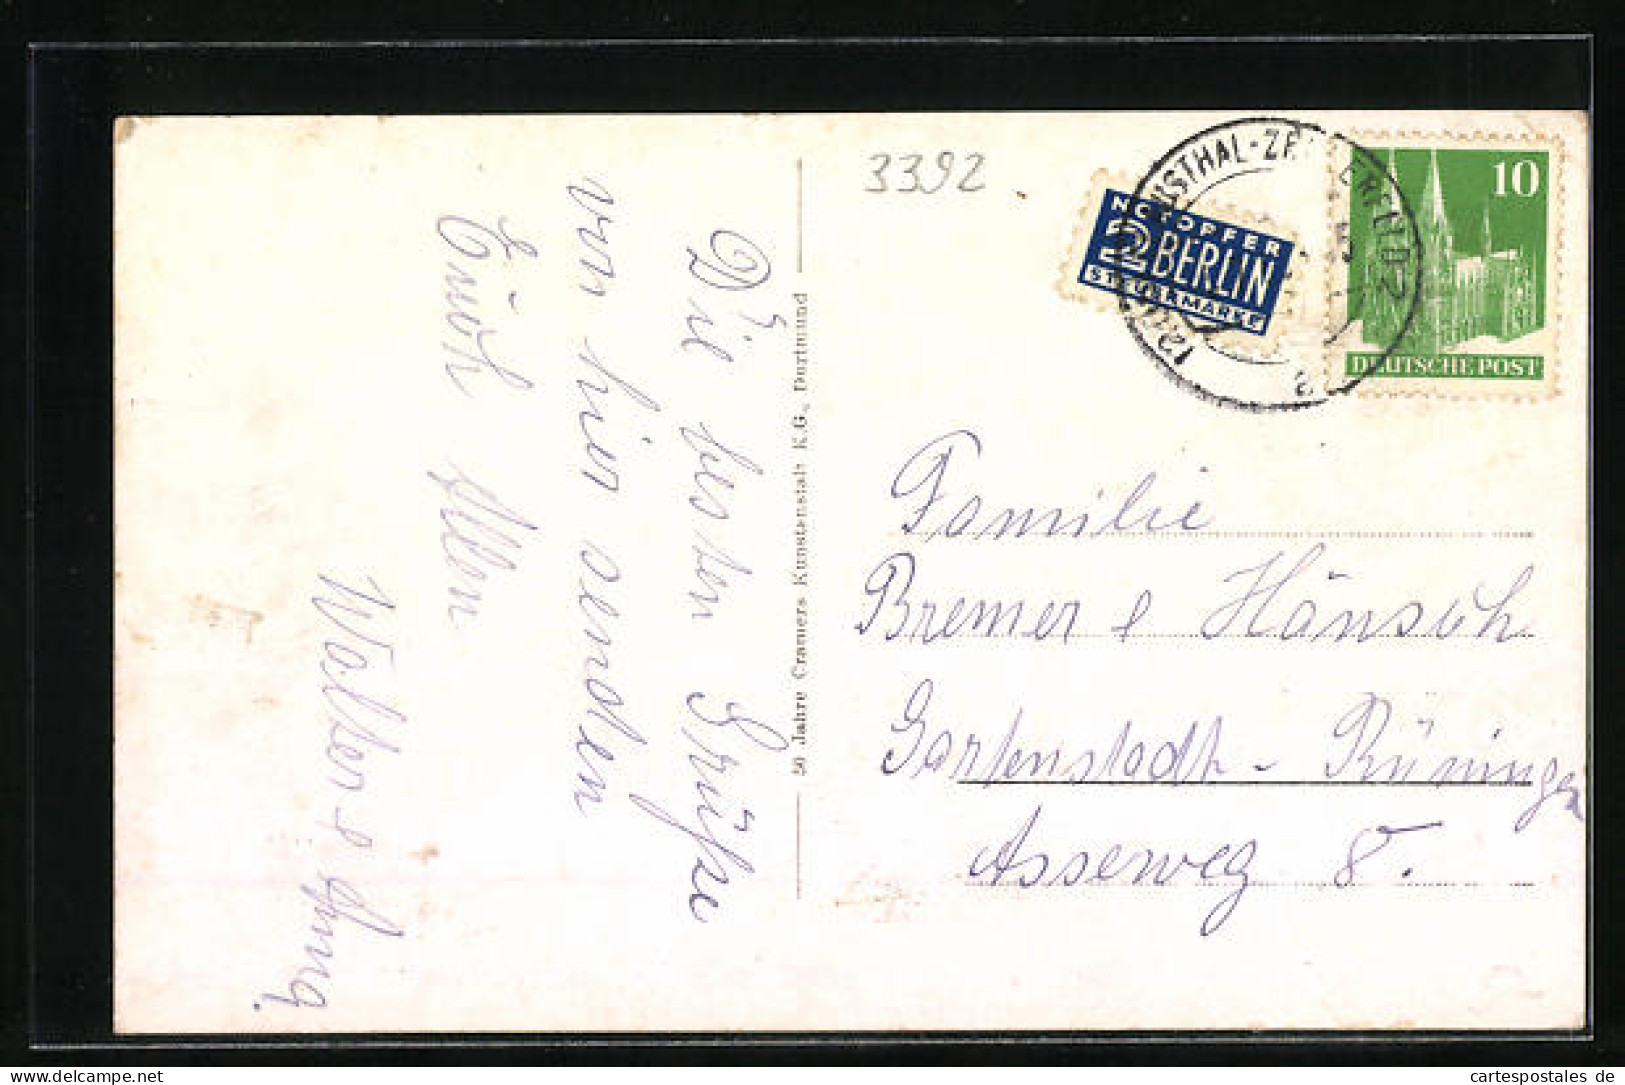 Die besten Grüße
von hier senden
Euch Allen
Walter e Anng.
50 Jahre Cramers Kunstanstalt K.G., Dortmund
3392
NOTOPFER
2 BERLIN
STEUERMARKE
10
DEUTSCHE POST
Familie
Bremer e Hänsch
Gartenstadt - Rüningen
Asseweg 8.
cartespostales de